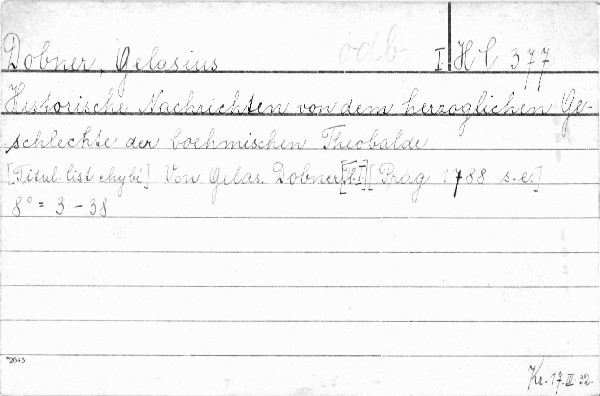 Dobner, Gelasius odb I H C 377
Historische Nachrichten von dem herzoglichen Ge-
schlechte der boehmischen Theobalde
[Titul. list chybí] Von Gelas. Dobner [Prag 1788 s. e.]
8° = 3 - 38
*2643
Kr. 17. III 32.